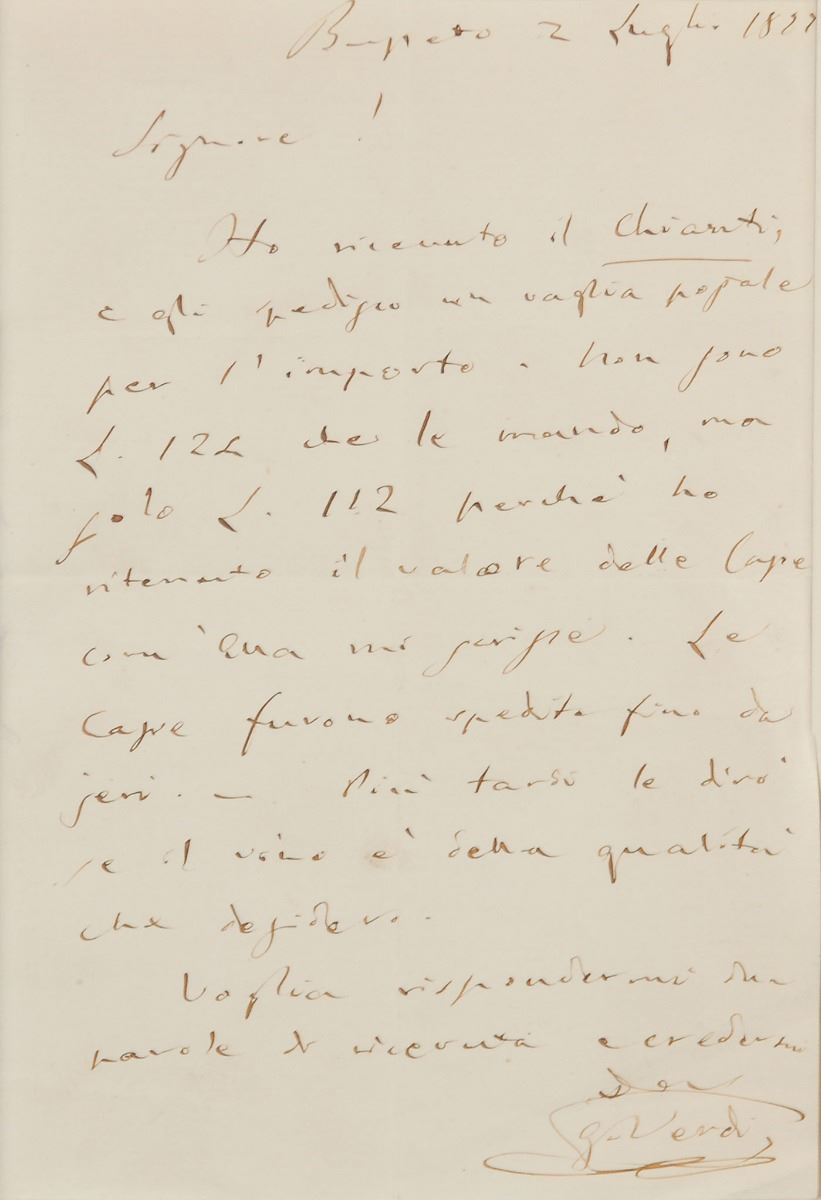 Busseto 2 Luglio 18
Signore!
Ho ricevuto il Chianti,
e gli spedisco un vaglia postale
per l'importo. Non sono
L. 122 che le mando, ma
solo L. 112 perchè ho
ritenuto il valore delle Casse
com'Ella mi scrisse. Le
Casse furono spedite fino da
jeri. — Più tardi le dirò
se il vino è della qualità
che desidero.
Voglia rispondermi due
parole di ricevuta e credermi
Dev
G. Verdi